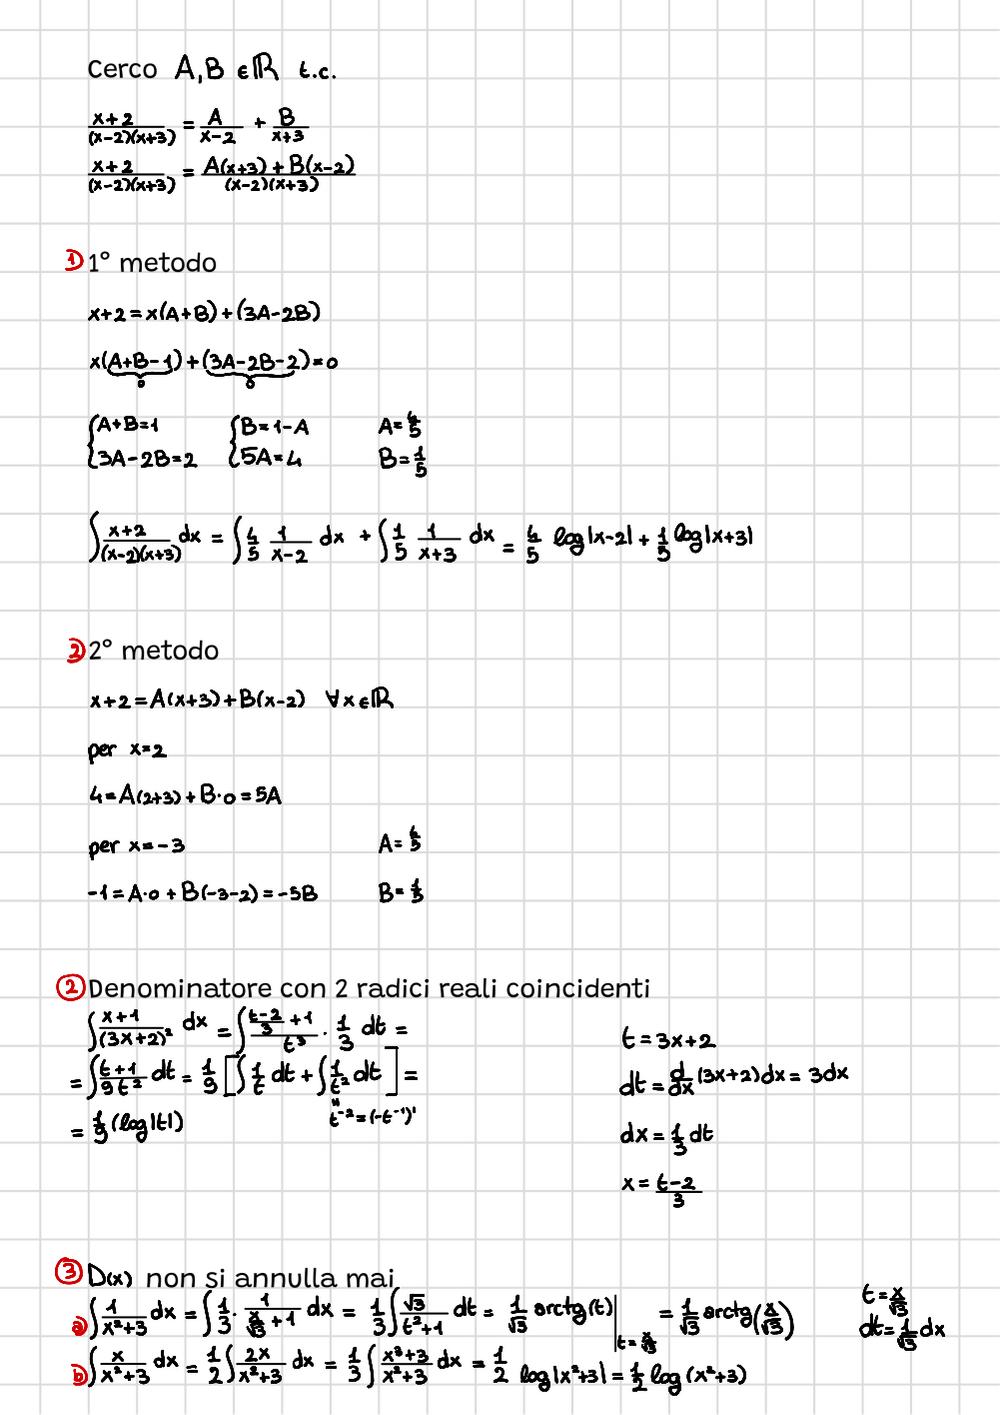 Cerco A,B ∈ ℝ t.c.
x+2/(x-2)(x+3) = A/x-2 + B/x+3
x+2/(x-2)(x+3) = A(x+3)+B(x-2)/(x-2)(x+3)
1) 1° metodo
x+2=x(A+B)+(3A-2B)
x(A+B-1)+(3A-2B-2)=0
0 0
{A+B=1 {B=1-A A=4/5
{3A-2B=2 {5A=4 B=1/5
∫ x+2/(x-2)(x+3) dx = ∫ 4/5 1/x-2 dx + ∫ 1/5 1/x+3 dx = 4/5 log|x-2| + 1/5 log|x+3|
2) 2° metodo
x+2=A(x+3)+B(x-2) ∀x∈ℝ
per x=2
4=A(2+3)+B·0=5A
per x=-3 A=4/5
-1=A·0+B(-3-2)=-5B B=1/5
② Denominatore con 2 radici reali coincidenti
∫ x+1/(3x+2)² dx = ∫ t-2/3 +1/t³ · 1/3 dt =
= ∫ t+1/9t² dt = 1/9 [∫ 1/t dt + ∫ 1/t² dt] =
t⁻²=(-t⁻¹)'
= 1/9 (log|t|)
t=3x+2
dt=d/dx (3x+2)dx=3dx
dx=1/3 dt
x=t-2/3
③ D(x) non si annulla mai
a) ∫ 1/x²+3 dx = ∫ 1/3 · 1/x/√3 +1 dx = 1/3 ∫ √3/t²+1 dt = 1/√3 arctg(t)|t=x/√3 = 1/√3 arctg(x/√3)
t=x/√3
dt=1/√3 dx
b) ∫ x/x²+3 dx = 1/2 ∫ 2x/x²+3 dx = 1/3 ∫ x³+3/x²+3 dx = 1/2 log|x²+3| = 1/2 log(x²+3)